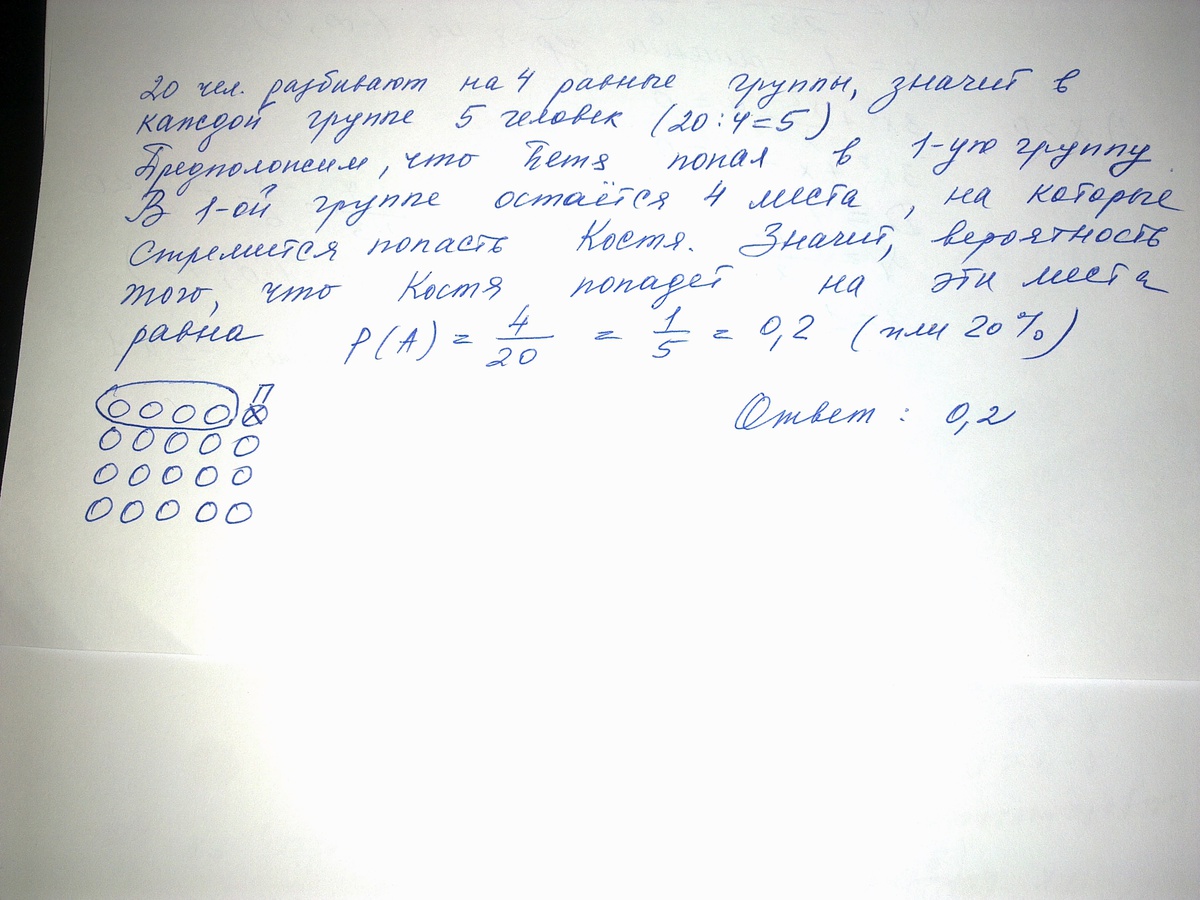 20 чел. разбивают на 4 равные группы, значит в
каждой группе 5 человек (20:4=5)
Предположим, что Петя попал в 1-ую группу.
В 1-ой группе остаётся 4 места, на которые
стремится попасть Костя. Значит, вероятность
того, что Костя попадет на эти места
равна P(A) = 4/20 = 1/5 = 0,2 (или 20%)
П
Ответ: 0,2